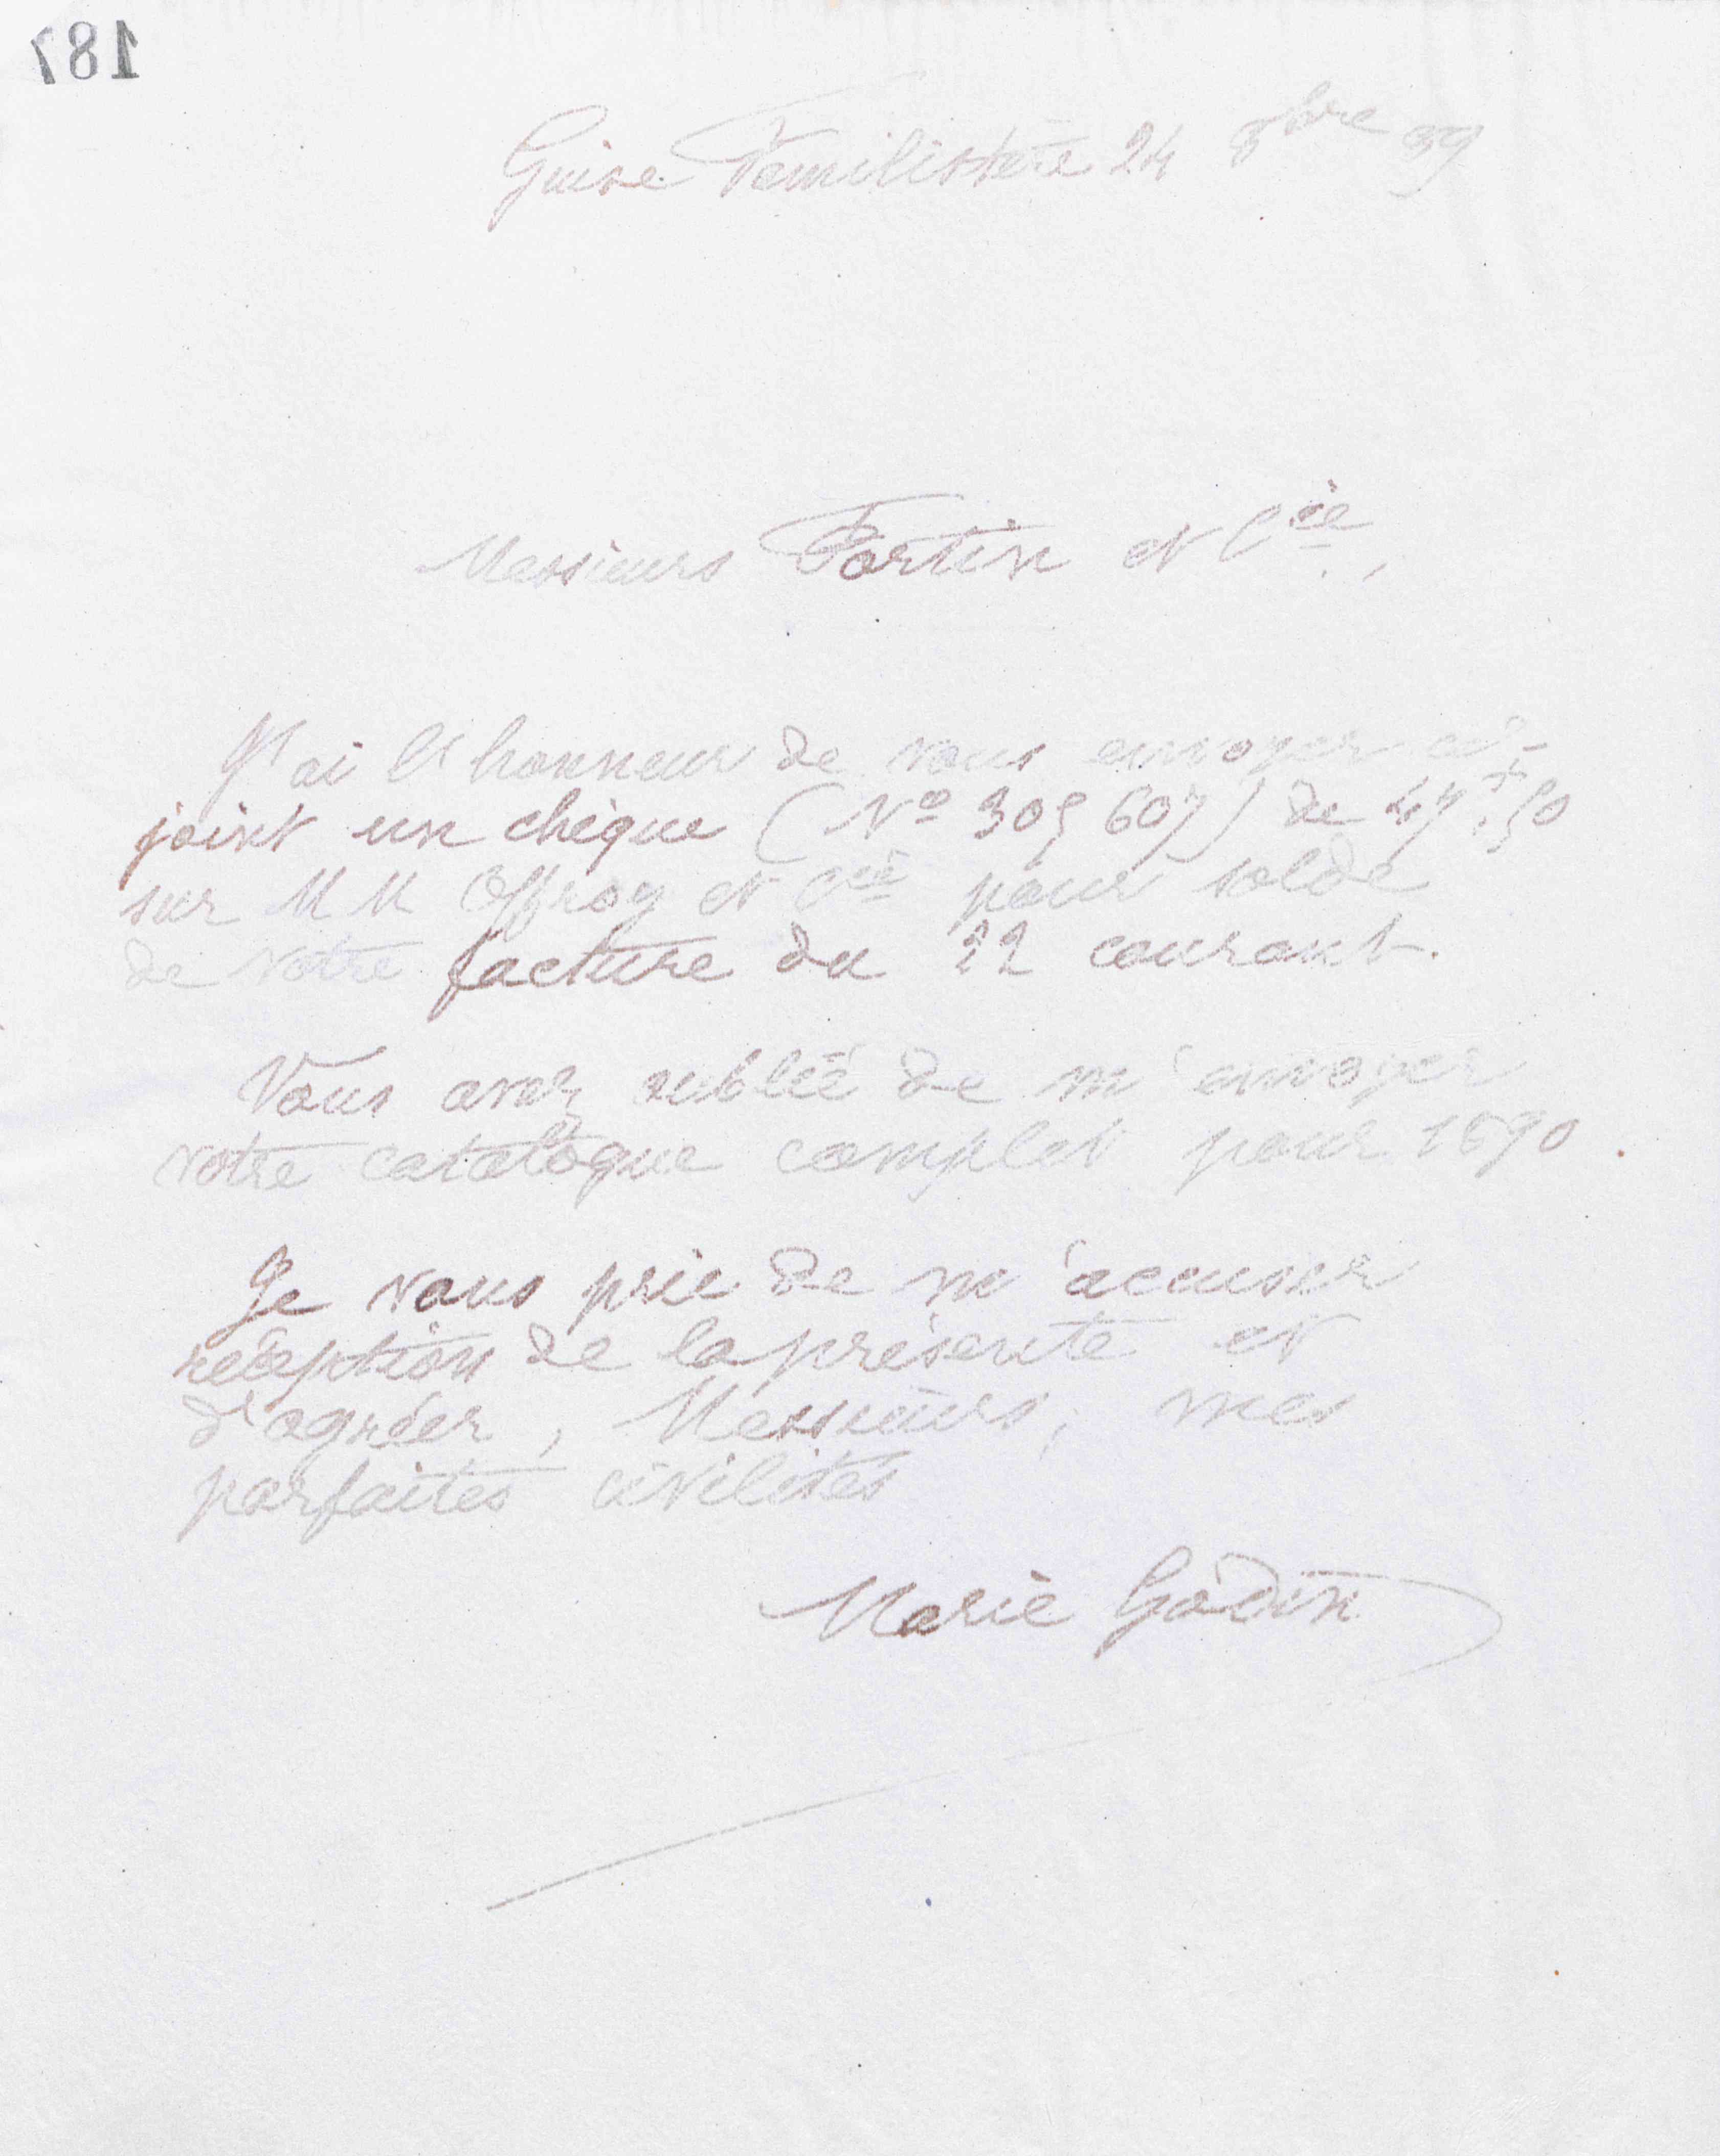 187
Guise Familistère 24 8bre 89
Messieurs Fortin et Cie,
J'ai l'honneur de vous envoyer ci-
joint un chèque (No 305 607) de 47f.50
sur MM Offroy et Cie pour solde
de votre facture du 22 courant.
Vous avez oublié de m'envoyer
votre catalogue complet pour 1890.
Je vous prie de m'accuser
réception de la présente et
d'agréer, Messieurs, mes
parfaites civilités
Marie Godin